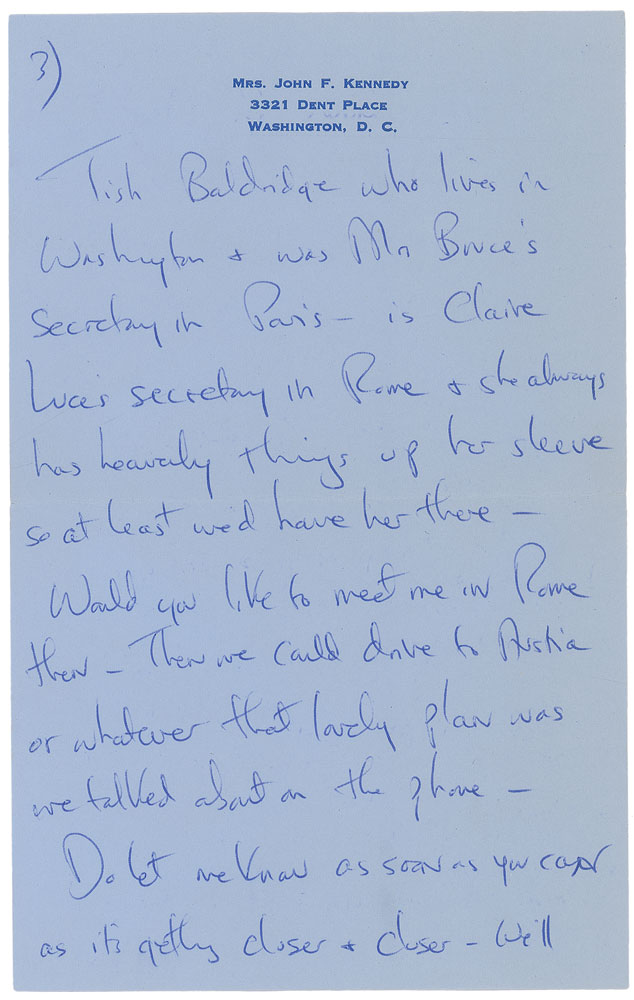 3)
MRS. JOHN F. KENNEDY
3321 DENT PLACE
WASHINGTON, D. C.
Tish Baldridge who lives in
Washington + was Mrs Bruce's
secretary in Paris – is Claire
Luce's secretary in Rome + she always
has heavenly things up her sleeve
so at least we'd have her there –
Would you like to meet me in Rome
then – Then we could drive to Austria
or whatever that lovely plan was
we talked about on the phone –
Do let me know as soon as you can
as it's getting closer + closer – We'll